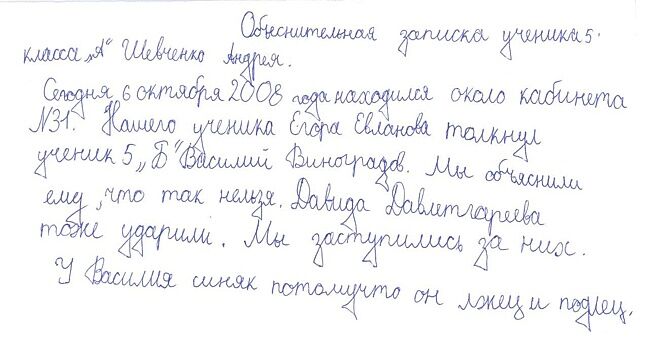 Объеснительная записка ученика 5
класса „А“ Шевченко Андрея.
Сегодня 6 октября 2008 года находился около кабинета
N31. Нашего ученика Егора Евланова толкнул
ученик 5 „Б“ Василий Виноградов. Мы объяснили
ему, что так нельзя. Давида Давлетгареева
тоже ударили. Мы заступились за них.
У Василия синяк потомучто он лжец и подлец.